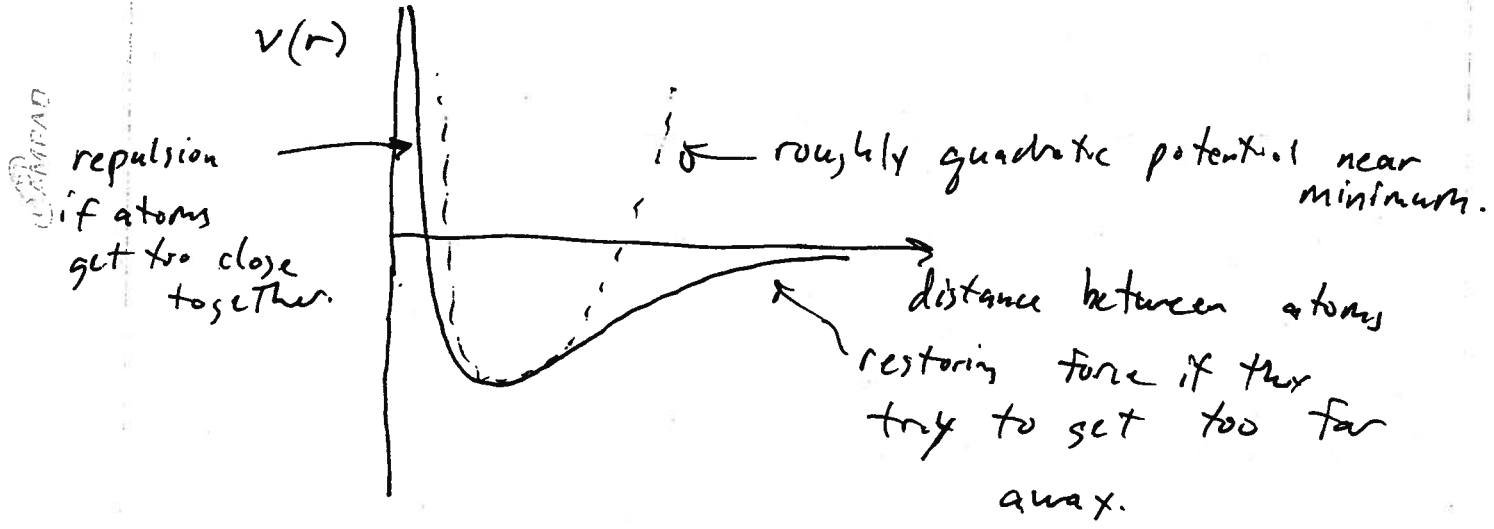 V(r)
repulsion
if atoms
get too close
together.
roughly quadratic potential near
minimum.
distance between atoms
restoring force if they
try to get too far
away.
AMPAD